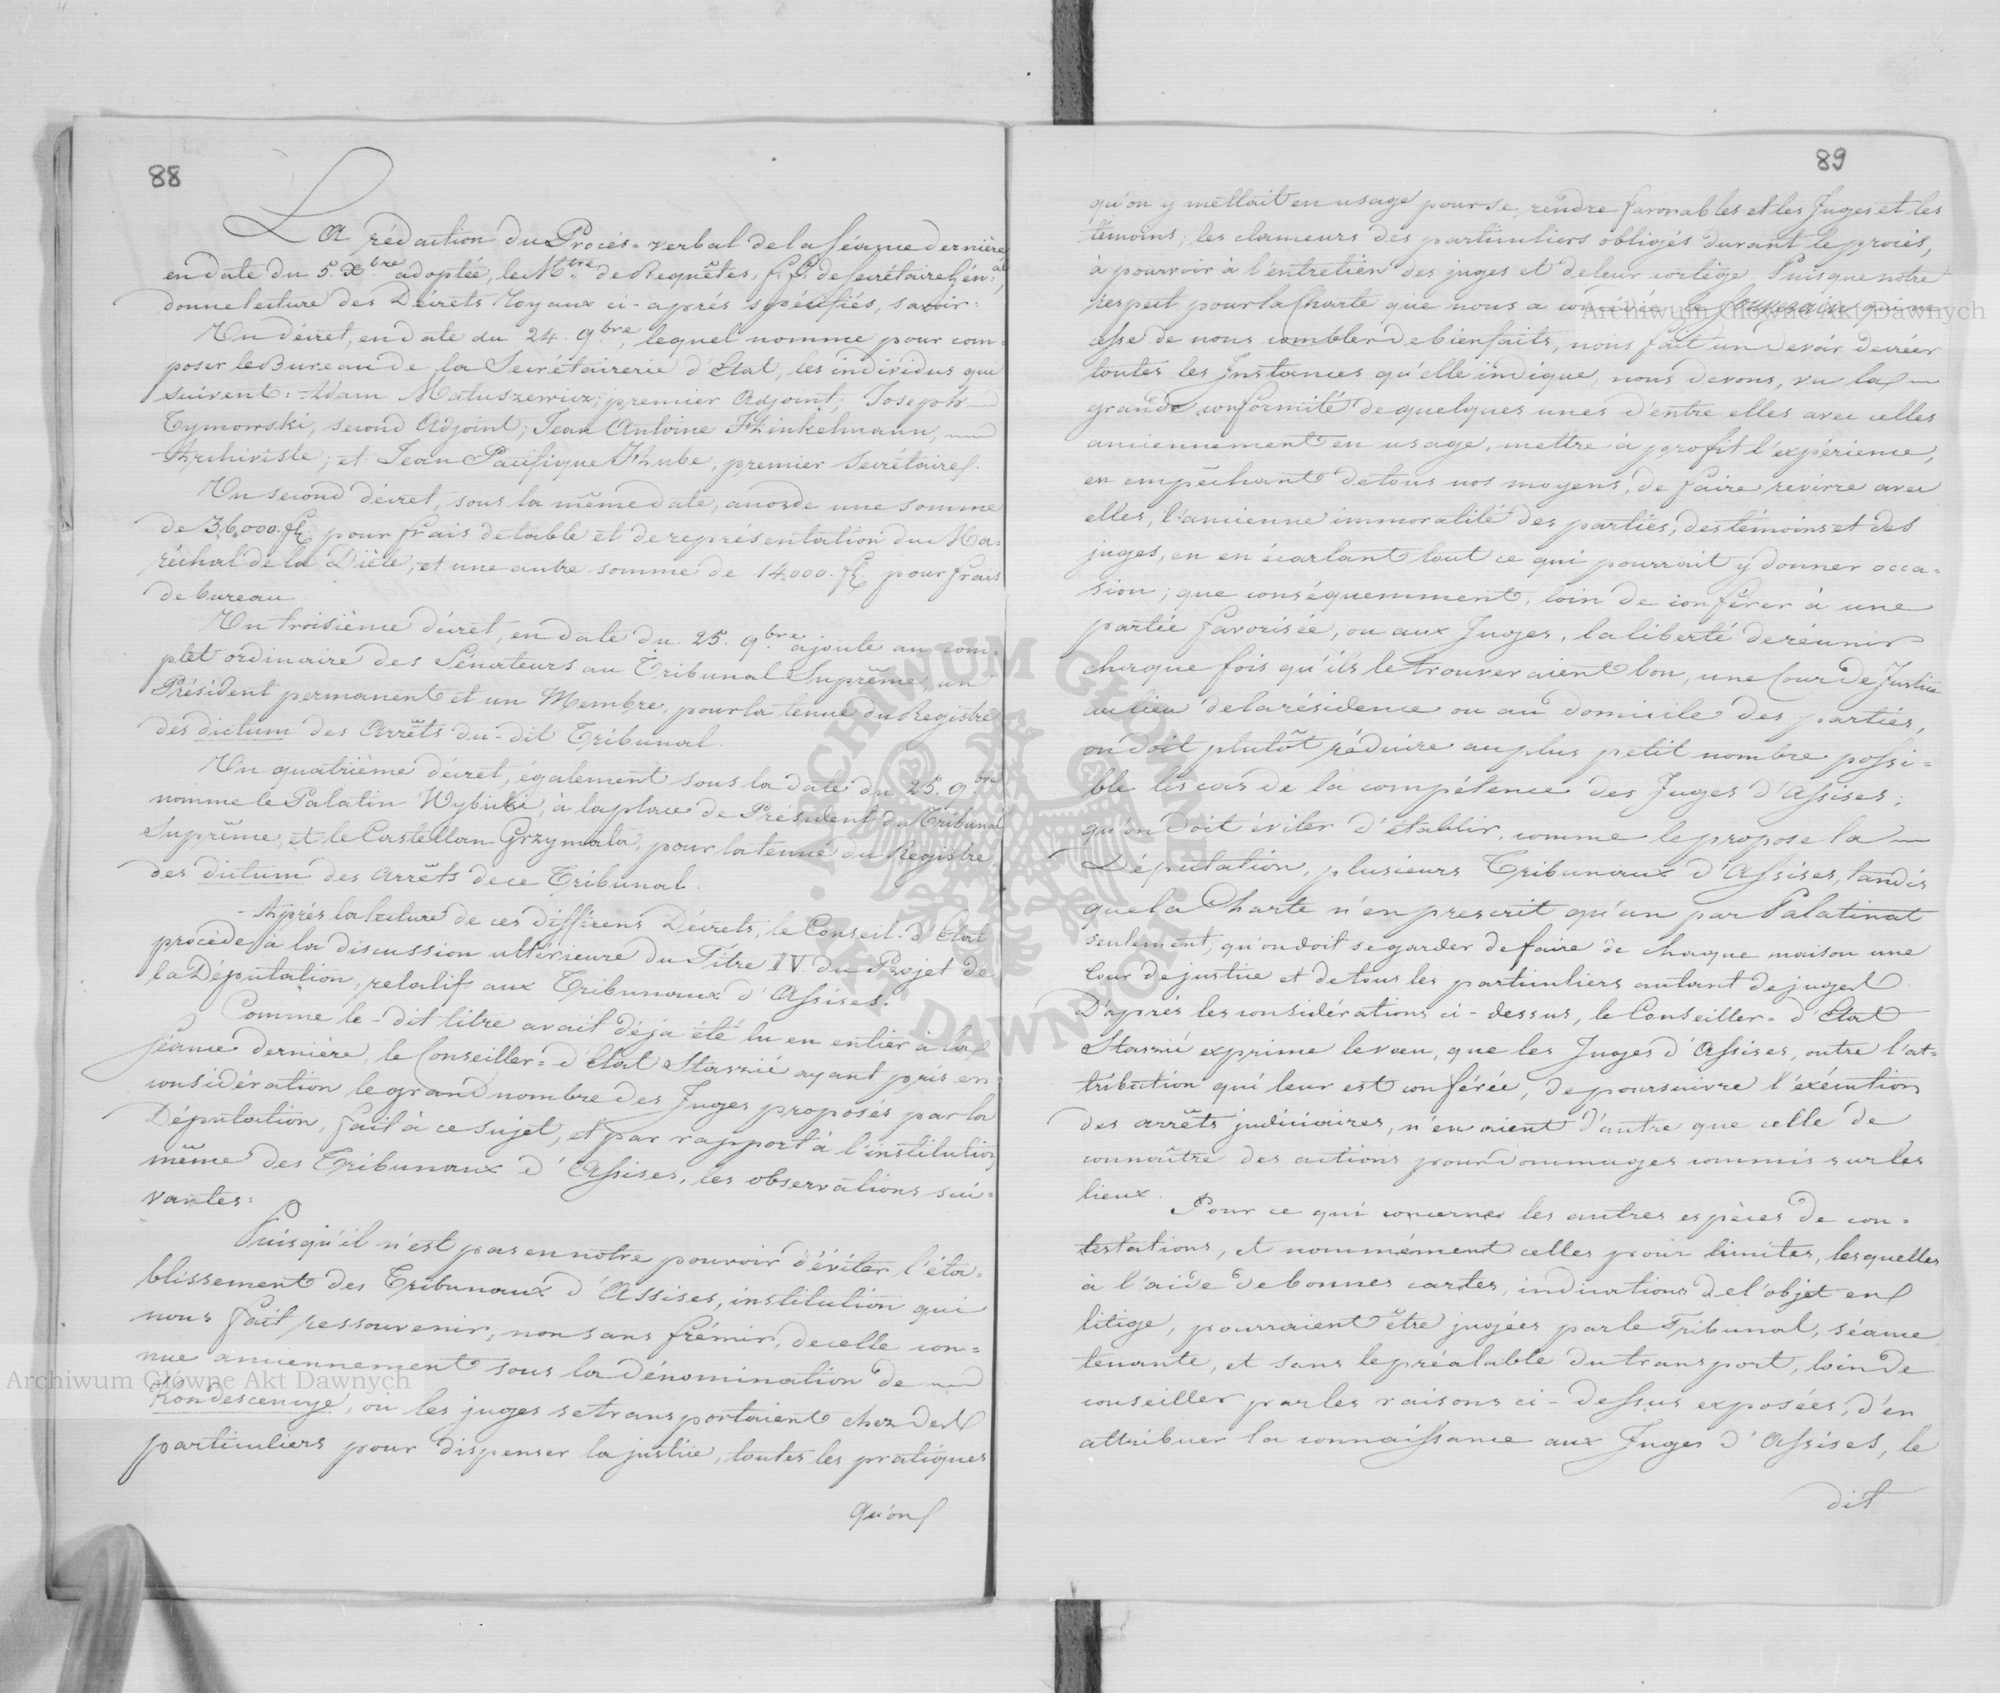 88
La rédaction du Procès-verbal de la Séance dernière
en date du 5. Xbre adoptée, le Mtre de Requêtes, f. f. de Secrétaire Génal,
donne lecture des Décrets Royaux ci-après spécifiés, savoir:
Un décret, en date du 24. 9bre, lequel nomme pour com-
poser le Bureau de la Secrétairerie d'Etat, les individus que
suivent: Adam Matuszewicz, premier Adjoint; Joseph
Tymowski, second Adjoint; Jean Antoine Hinkelmann,
Archiviste; et Jean Pacifique Hube, premier Secrétaire.
Un second décret, sous la même date, accorde une somme
de 36,000. fl. pour frais de table et de représentation du Ma-
réchal de la Diète, et une autre somme de 14,000. fl. pour frais
de bureau.
Un troisième décret, en date du 25. 9bre ajoute au com-
plet ordinaire des Sénateurs au Tribunal Suprême, un
Président permanent et un Membre, pour la tenue du Registre
des dictum des Arrêts du-dit Tribunal.
Un quatrième décret, également sous la date du 25. 9bre
nomme le Palatin Wybicki, à la place de Président du Tribunal
Suprême, et le Castellan Grzymala, pour la tenue du Registre
des dictum des arrêts de ce Tribunal.
Après la lecture de ces différens Décrets, le Conseil-d'Etat
procède à la discussion ultérieure du Titre IV. du Projet de
la Députation, relatif aux Tribunaux d'Assises.
Comme le-dit titre avait déja été lu en entier à la
Séance dernière, le Conseiller-d'Etat Staszié ayant pris en
considération le grand nombre des Juges proposés par la
Députation, fait à ce sujet, et par rapport à l'institution
même des Tribunaux d'Assises, les observations sui-
vantes:
Puisqu'il n'est pas en notre pouvoir d'éviter l'éta-
blissement des Tribunaux d'Assises, institution qui
nous fait ressouvenir, non sans frémir, de celle con-
nue anciennement sous la dénomination de
Kondescencyé, où les juges se transportaient chez des
particuliers pour dispenser la justice, toutes les pratiques
qu'on
89
qu'on y mettait en usage pour se rendre favorables et les Juges et les
témoins; les clameurs des particuliers obligés durant le procès,
à pourvoir à l'entretien des juges et de leur cortège. Puisque notre
respect pour la Charte que nous a concédée le Souverain qui ne
cesse de nous combler de bienfaits, nous fait un devoir de créer
toutes les Instances qu'elle indique, nous devons, vu la
grande conformité de quelques unes d'entre elles avec celles
anciennement en usage, mettre à profit l'expérience,
en empêchant de tous nos moyens, de faire revivre avec
elles, l'ancienne immoralité des parties, des témoins et des
juges, en en écartant tout ce qui pourrait y donner occa-
sion; que conséquemment, loin de conférer à une
partie favorisée, ou aux Juges, la liberté de réunir
chaque fois qu'ils le trouveraient bon, une Cour de Justice
au lieu de la résidence ou au domicile des parties,
on doit plutôt réduire au plus petit nombre possi-
ble les cas de la compétence des Juges d'Assises;
qu'on doit éviter d'établir, comme le propose la
Députation, plusieurs Tribunaux d'Assises, tandis
que la Charte n'en prescrit qu'un par Palatinat
seulement, qu'on doit se garder de faire de chaque maison une
Cour de justice et de tous les particuliers autant de juges.
D'après les considérations ci-dessus, le Conseiller-d'Etat
Staszié exprime le voeu, que les Juges d'Assises, outre l'at-
tribution qui leur est conférée, de poursuivre l'exécution
des arrêts judiciaires, n'en aient d'autre que celle de
connaître des actions pour dommages commis sur les
lieux.
Pour ce qui concerne les autres espèces de con-
testations, et nommément celles pour limites, lesquelles
à l'aide de bonnes cartes, indications de l'objet en
litige, pourraient être jugées par le Tribunal, séance
tenante, et sans le préalable du transport, loin de
conseiller par les raisons ci-dessus exposées, d'en
attribuer la connaissance aux Juges d'Assises, le
dit
Archiwum Główne Akt Dawnych
Archiwum Główne Akt Dawnych
ARCHIWUM GŁÓWNE AKT DAWNYCH